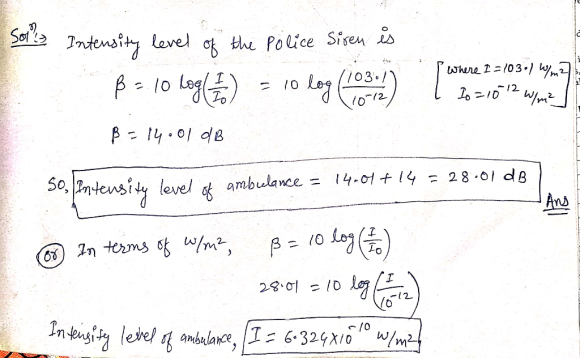 Solⁿ:→ Intensity level of the Police Siren is
β = 10 log(I/I₀) = 10 log(103.1/10⁻¹²) [where I = 103.1 W/m²
I₀ = 10⁻¹² W/m²]
β = 14.01 dB
So, Intensity level of ambulance = 14.01 + 14 = 28.01 dB
Ans
(or) In terms of W/m², β = 10 log(I/I₀)
28.01 = 10 log(I/10⁻¹²)
Intensity level of ambulance, I = 6.324×10⁻¹⁰ W/m²